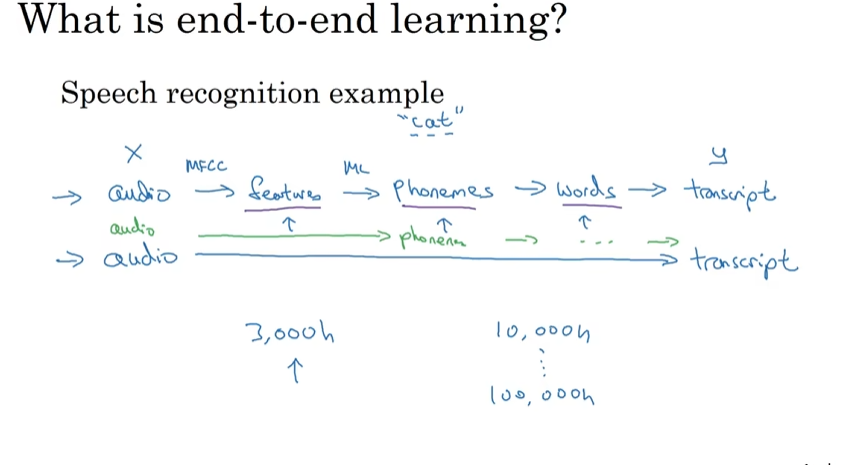 What is end-to-end learning?
Speech recognition example
"cat"
X MFCC ML y
→ audio → features → Phonemes → words → transcript
audio → phonem → ... →
→ audio → transcript
3,000h 10,000h
100,000h